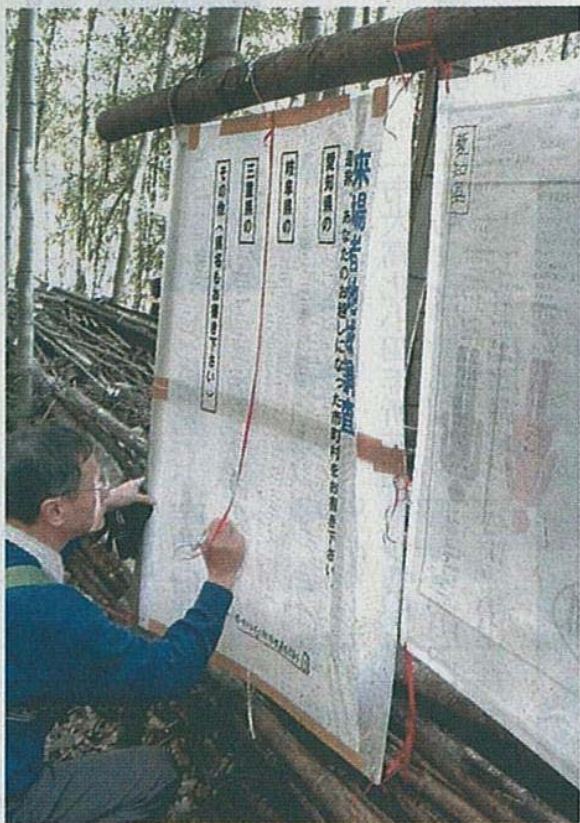 来場者地域調査
あなたのお越しになった市町村をお書き下さい。
愛知県の
岐阜県の
三重県の
その他（県名もお書き下さい）
愛知県